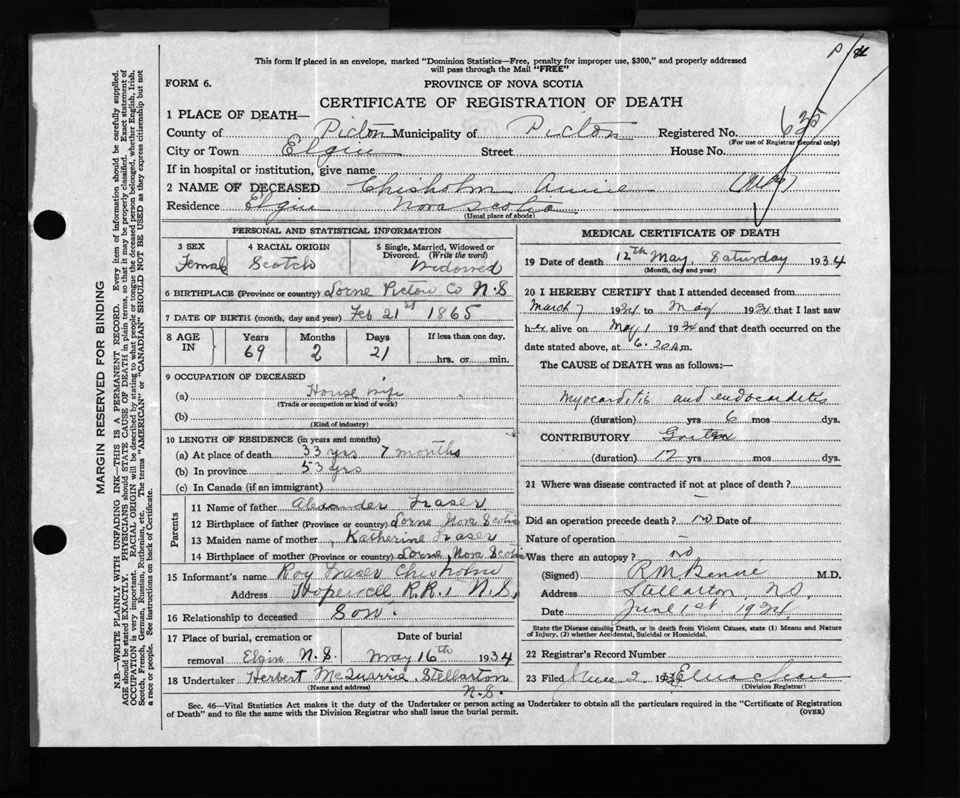 This form if placed in an envelope, marked "Dominion Statistics—Free, penalty for improper use, $300," and properly addressed
will pass through the Mail "FREE"
FORM 6.
PROVINCE OF NOVA SCOTIA
CERTIFICATE OF REGISTRATION OF DEATH
1 PLACE OF DEATH—
County of Pictou Municipality of Pictou Registered No. 635
(For use of Registrar General only)
City or Town Elgin Street House No.
If in hospital or institution, give name
2 NAME OF DECEASED Chisholm Annie (Mrs)
Residence Elgin Nova Scotia
(Usual place of abode)
PERSONAL AND STATISTICAL INFORMATION
3 SEX 4 RACIAL ORIGIN 5 Single, Married, Widowed or
Divorced. (Write the word)
Female Scotch Widowed
6 BIRTHPLACE (Province or country) Lorne Pictou Co N.S
7 DATE OF BIRTH (month, day and year) Feb 21st 1865
8 AGE IN Years Months Days If less than one day,
69 2 21 hrs. or min.
9 OCCUPATION OF DECEASED
(a) House wife
(Trade or occupation or kind of work)
(b)
(Kind of industry)
10 LENGTH OF RESIDENCE (in years and months)
(a) At place of death 33 yrs 7 months
(b) In province 53 yrs
(c) In Canada (if an immigrant)
Parents
11 Name of father Alexander Fraser
12 Birthplace of father (Province or country) Lorne Nova Scotia
13 Maiden name of mother Katherine Fraser
14 Birthplace of mother (Province or country) Lorne, Nova Scotia
15 Informant's name Roy Fraser Chisholm
Address Hopewell R.R.1 N.S.
16 Relationship to deceased Son.
17 Place of burial, cremation or Date of burial
removal Elgin N.S. May 16th 1934
18 Undertaker Herbert McQuarrie Stellarton
(Name and address) N.S.
MEDICAL CERTIFICATE OF DEATH
19 Date of death 12th May, Saturday 1934
(Month, day and year)
20 I HEREBY CERTIFY that I attended deceased from
March 7 1934 to May 1934 that I last saw
her alive on May 1 1934 and that death occurred on the
date stated above, at 6.20 A.m.
The CAUSE OF DEATH was as follows:—
Myocarditis and endocarditis
(duration) yrs 6 mos dys.
CONTRIBUTORY
(duration) 12 yrs mos dys.
21 Where was disease contracted if not at place of death?
Did an operation precede death? no Date of
Nature of operation
Was there an autopsy? no
(Signed) M.D.
Address Stellarton, N.S.
Date June 1st 1934
State the Disease causing Death, or in death from Violent Causes, state (1) Means and Nature
of Injury, (2) whether Accidental, Suicidal or Homicidal.
22 Registrar's Record Number
23 Filed June 2, 193
(Division Registrar)
Sec. 46—Vital Statistics Act makes it the duty of the Undertaker or person acting as Undertaker to obtain all the particulars required in the "Certificate of Registration
of Death" and to file the same with the Division Registrar who shall issue the burial permit.
(OVER)
MARGIN RESERVED FOR BINDING
N.B.—WRITE PLAINLY WITH UNFADING INK—THIS IS A PERMANENT RECORD. Every item of information should be carefully supplied.
AGE should be stated EXACTLY. PHYSICIANS should STATE CAUSE OF DEATH in plain terms, so that it may be properly classified. Exact statement of
OCCUPATION is very important. RACIAL ORIGIN will be described by stating to what people or tongue the deceased person belonged, whether English, Irish,
Scotch, French, German, Russian, Ruthenian, etc. The terms "AMERICAN" or "CANADIAN" SHOULD NOT BE USED as they express citizenship but not
a race or people. See instructions on back of Certificate.